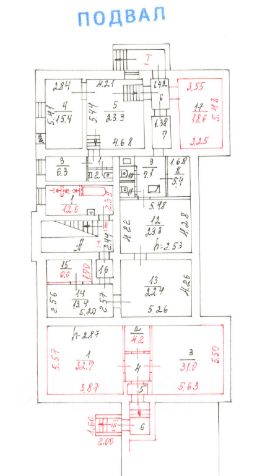 ПОДВАЛ
I
2.84
4.21
3.55
4
15.4
5.47
5.44
5
23.3
6
17
18.6
5.48
1.38
7
4.68
3.25
3
6.3
1
9
7.1
1.68
8
5.4
1
12.6
2.33
5.48
12
23.3
4.22
4.28
h-2.53
2.44
А
15
6.6
16
13
22.4
4.26
14
13.4
2.56
5.20
2.57
5.26
h-2.87
1
32.9
5.57
3.87
4.2
4
3
31.0
5.50
5.63
5
6
1.60
2.00